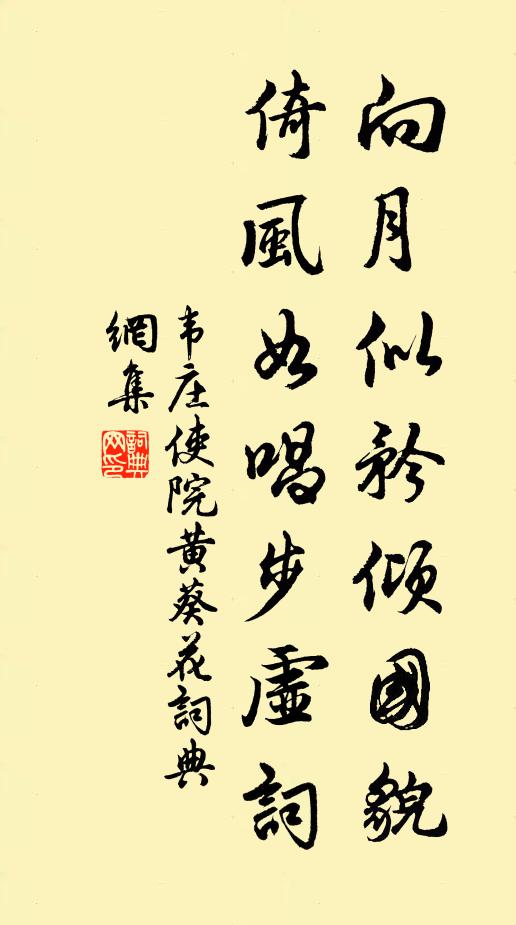 向月似矜傾國貌
倚風如唱步虛詞
韦庄使院黄葵花詞典
網集
詞典
网